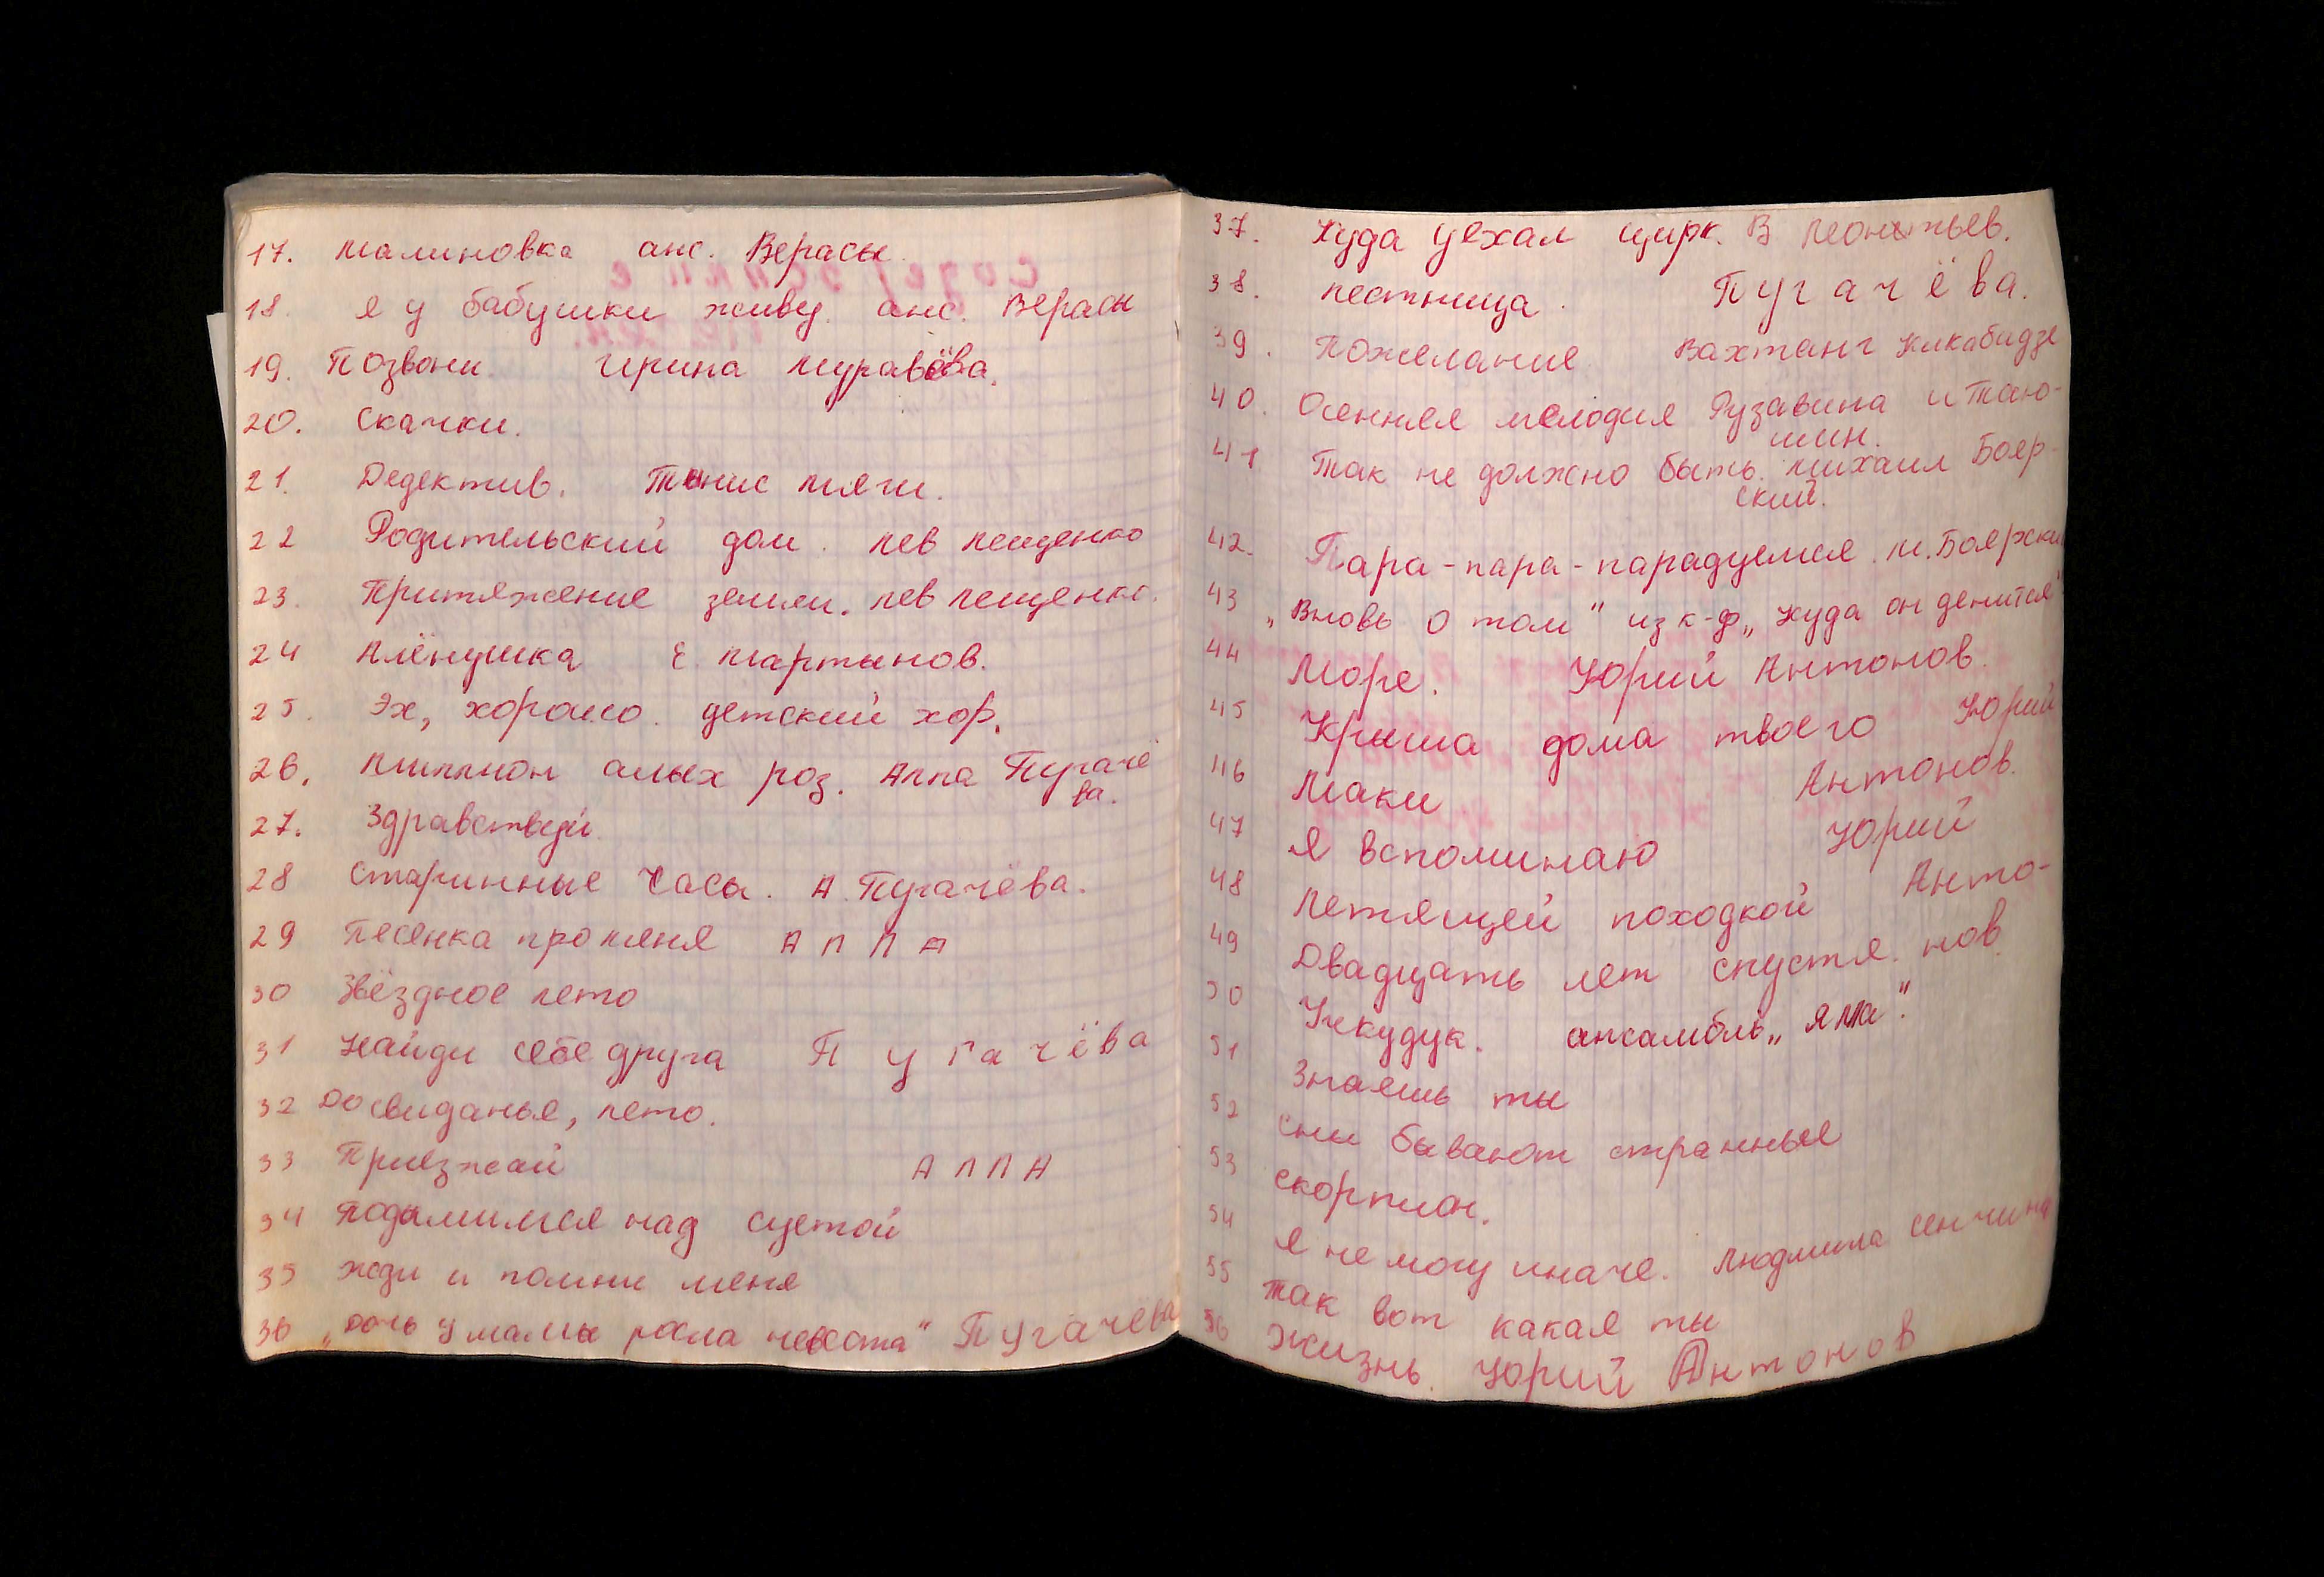 17. Малиновка анс. Верасы
18. Я у бабушки живу. анс. Верасы
19. Позвони. Ирина Муравёва.
20. Скачки.
21. Дедектив. Тынис Мяги.
22 Родительский дом. Лев Лещенко
23. Притяжение земли. Лев Лещенко.
24 Алёнушка Е. Мартынов.
25. Эх, хорошо. детский хор.
26. Миллион алых роз. Алла Пугачё
ва.
27. Здравствуй
28 Старинные часы. А. Пугачёва.
29 Песенка про меня АЛЛА
30 Звёздное лето
31 Найди себе друга Пугачёва
32 До свиданья, лето.
33 Приезжай АЛЛА
34 Подымимся над суетой
35 Жди и помни меня
36 „Дочь у мамы росла невеста" Пугачёва
37. Куда уехал цирк. В Леонтьев.
38. Лестница. Пугачёва.
39. Пожелание Вахтанг Кикабидзе
40. Осенняя мелодия Рузавина и Таю-
шин.
41 Так не должно быть. Михаил Бояр-
ский.
42. Пара-пара-парадуемся. М. Боярски
43 „Вновь о том" из к-ф „Куда он денится"
44 Море. Юрий Антонов.
45 Крыша дома твоего Юрий
46 Маки Антонов.
47 Я вспоминаю Юрий
48 Летящей походкой Анто-
49 Двадцать лет спустя. нов
50 Учкудук. ансамбль „Ялла".
51 Знаешь ты
52 Сны бывают странные
53 Скорпион.
54 Я не могу иначе. Людмила Сенчина
55 Так вот какая ты
56 Жизнь. Юрий Антонов